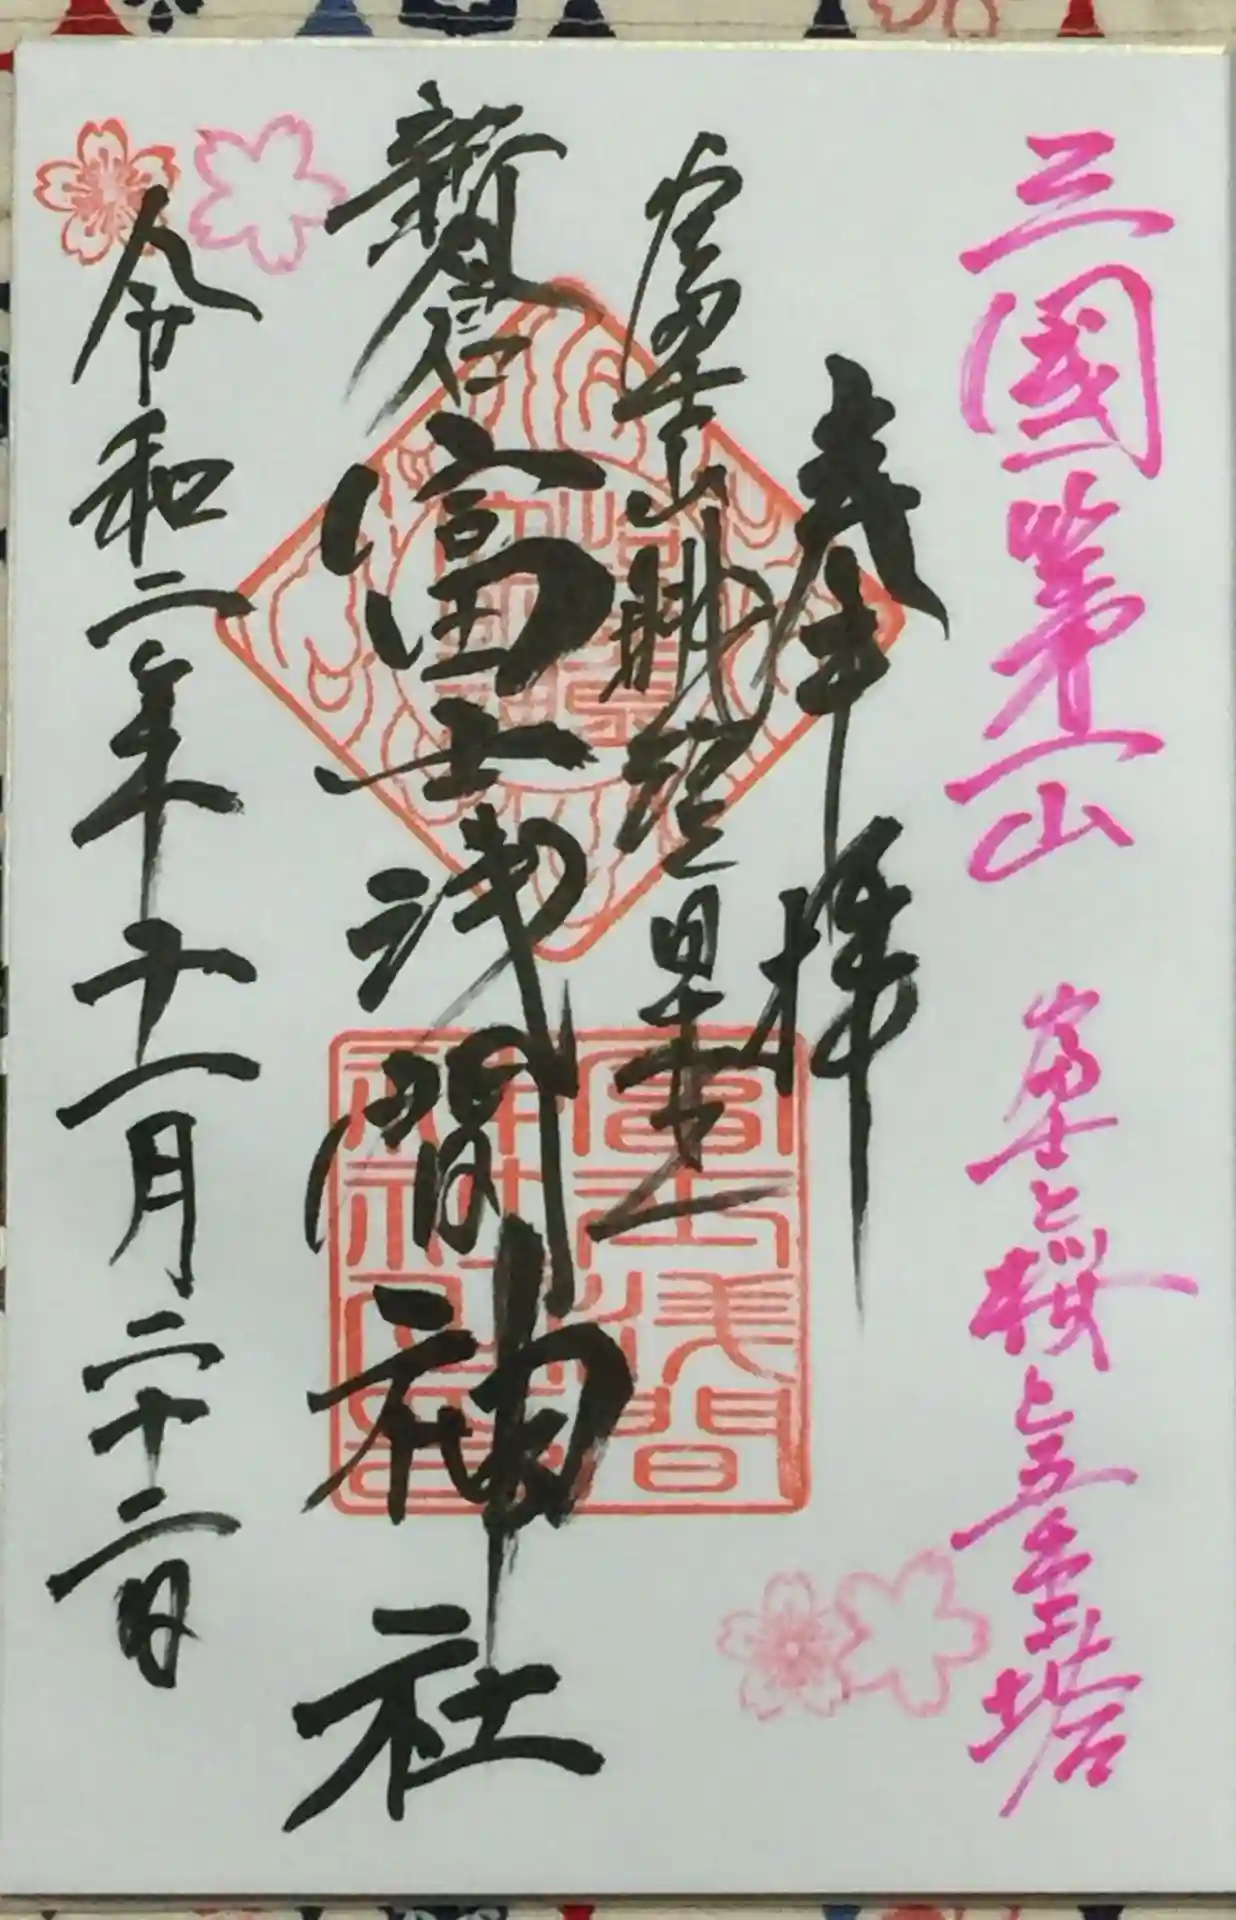 三國第一山 富士と桜と五重塔
奉拝
富士山眺望
新倉 富士浅間神社
令和二年十一月二十二日
富士浅間神社